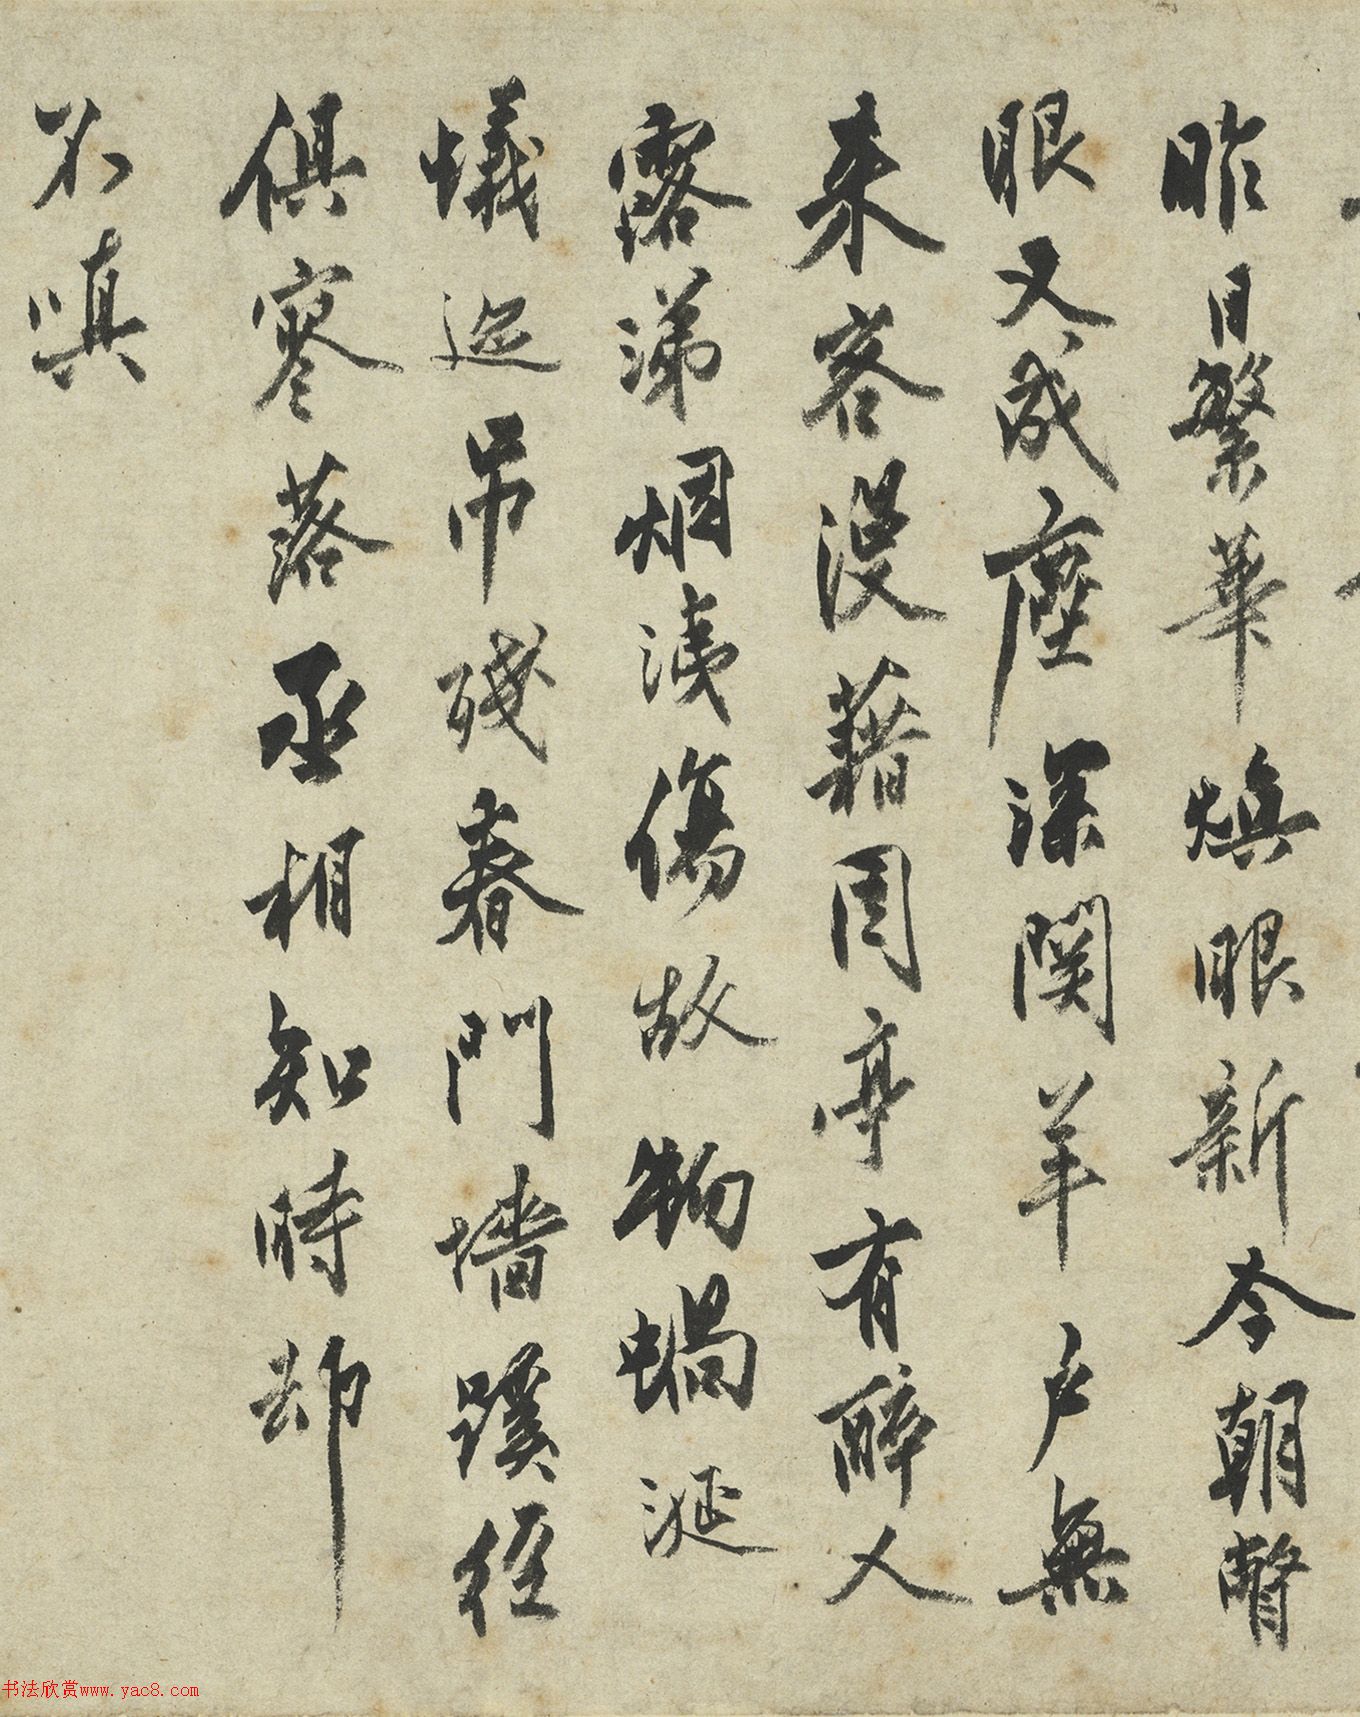 昨日繁華煥眼新今朝瞥
眼又成塵深關羊戶無
来客漫藉周亭有醉人
露涕烟洟傷故物蝸涎
蟻迹吊殘春門墻蹊徑
俱寥落丞相知時却
不嗔
书法欣赏www.yac8.com